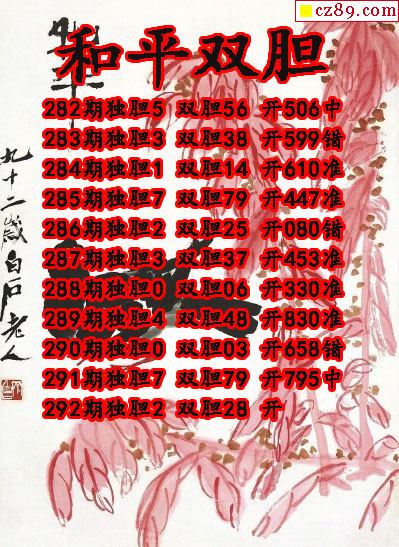 cz89.com
和平双胆
282期独胆5 双胆56 开506中
283期独胆3 双胆38 开599错
284期独胆1 双胆14 开610准
285期独胆7 双胆79 开447准
286期独胆2 双胆25 开080错
287期独胆3 双胆37 开453准
288期独胆0 双胆06 开330准
289期独胆4 双胆48 开830准
290期独胆0 双胆03 开658错
291期独胆7 双胆79 开795中
292期独胆2 双胆28 开
九十二岁白石老人